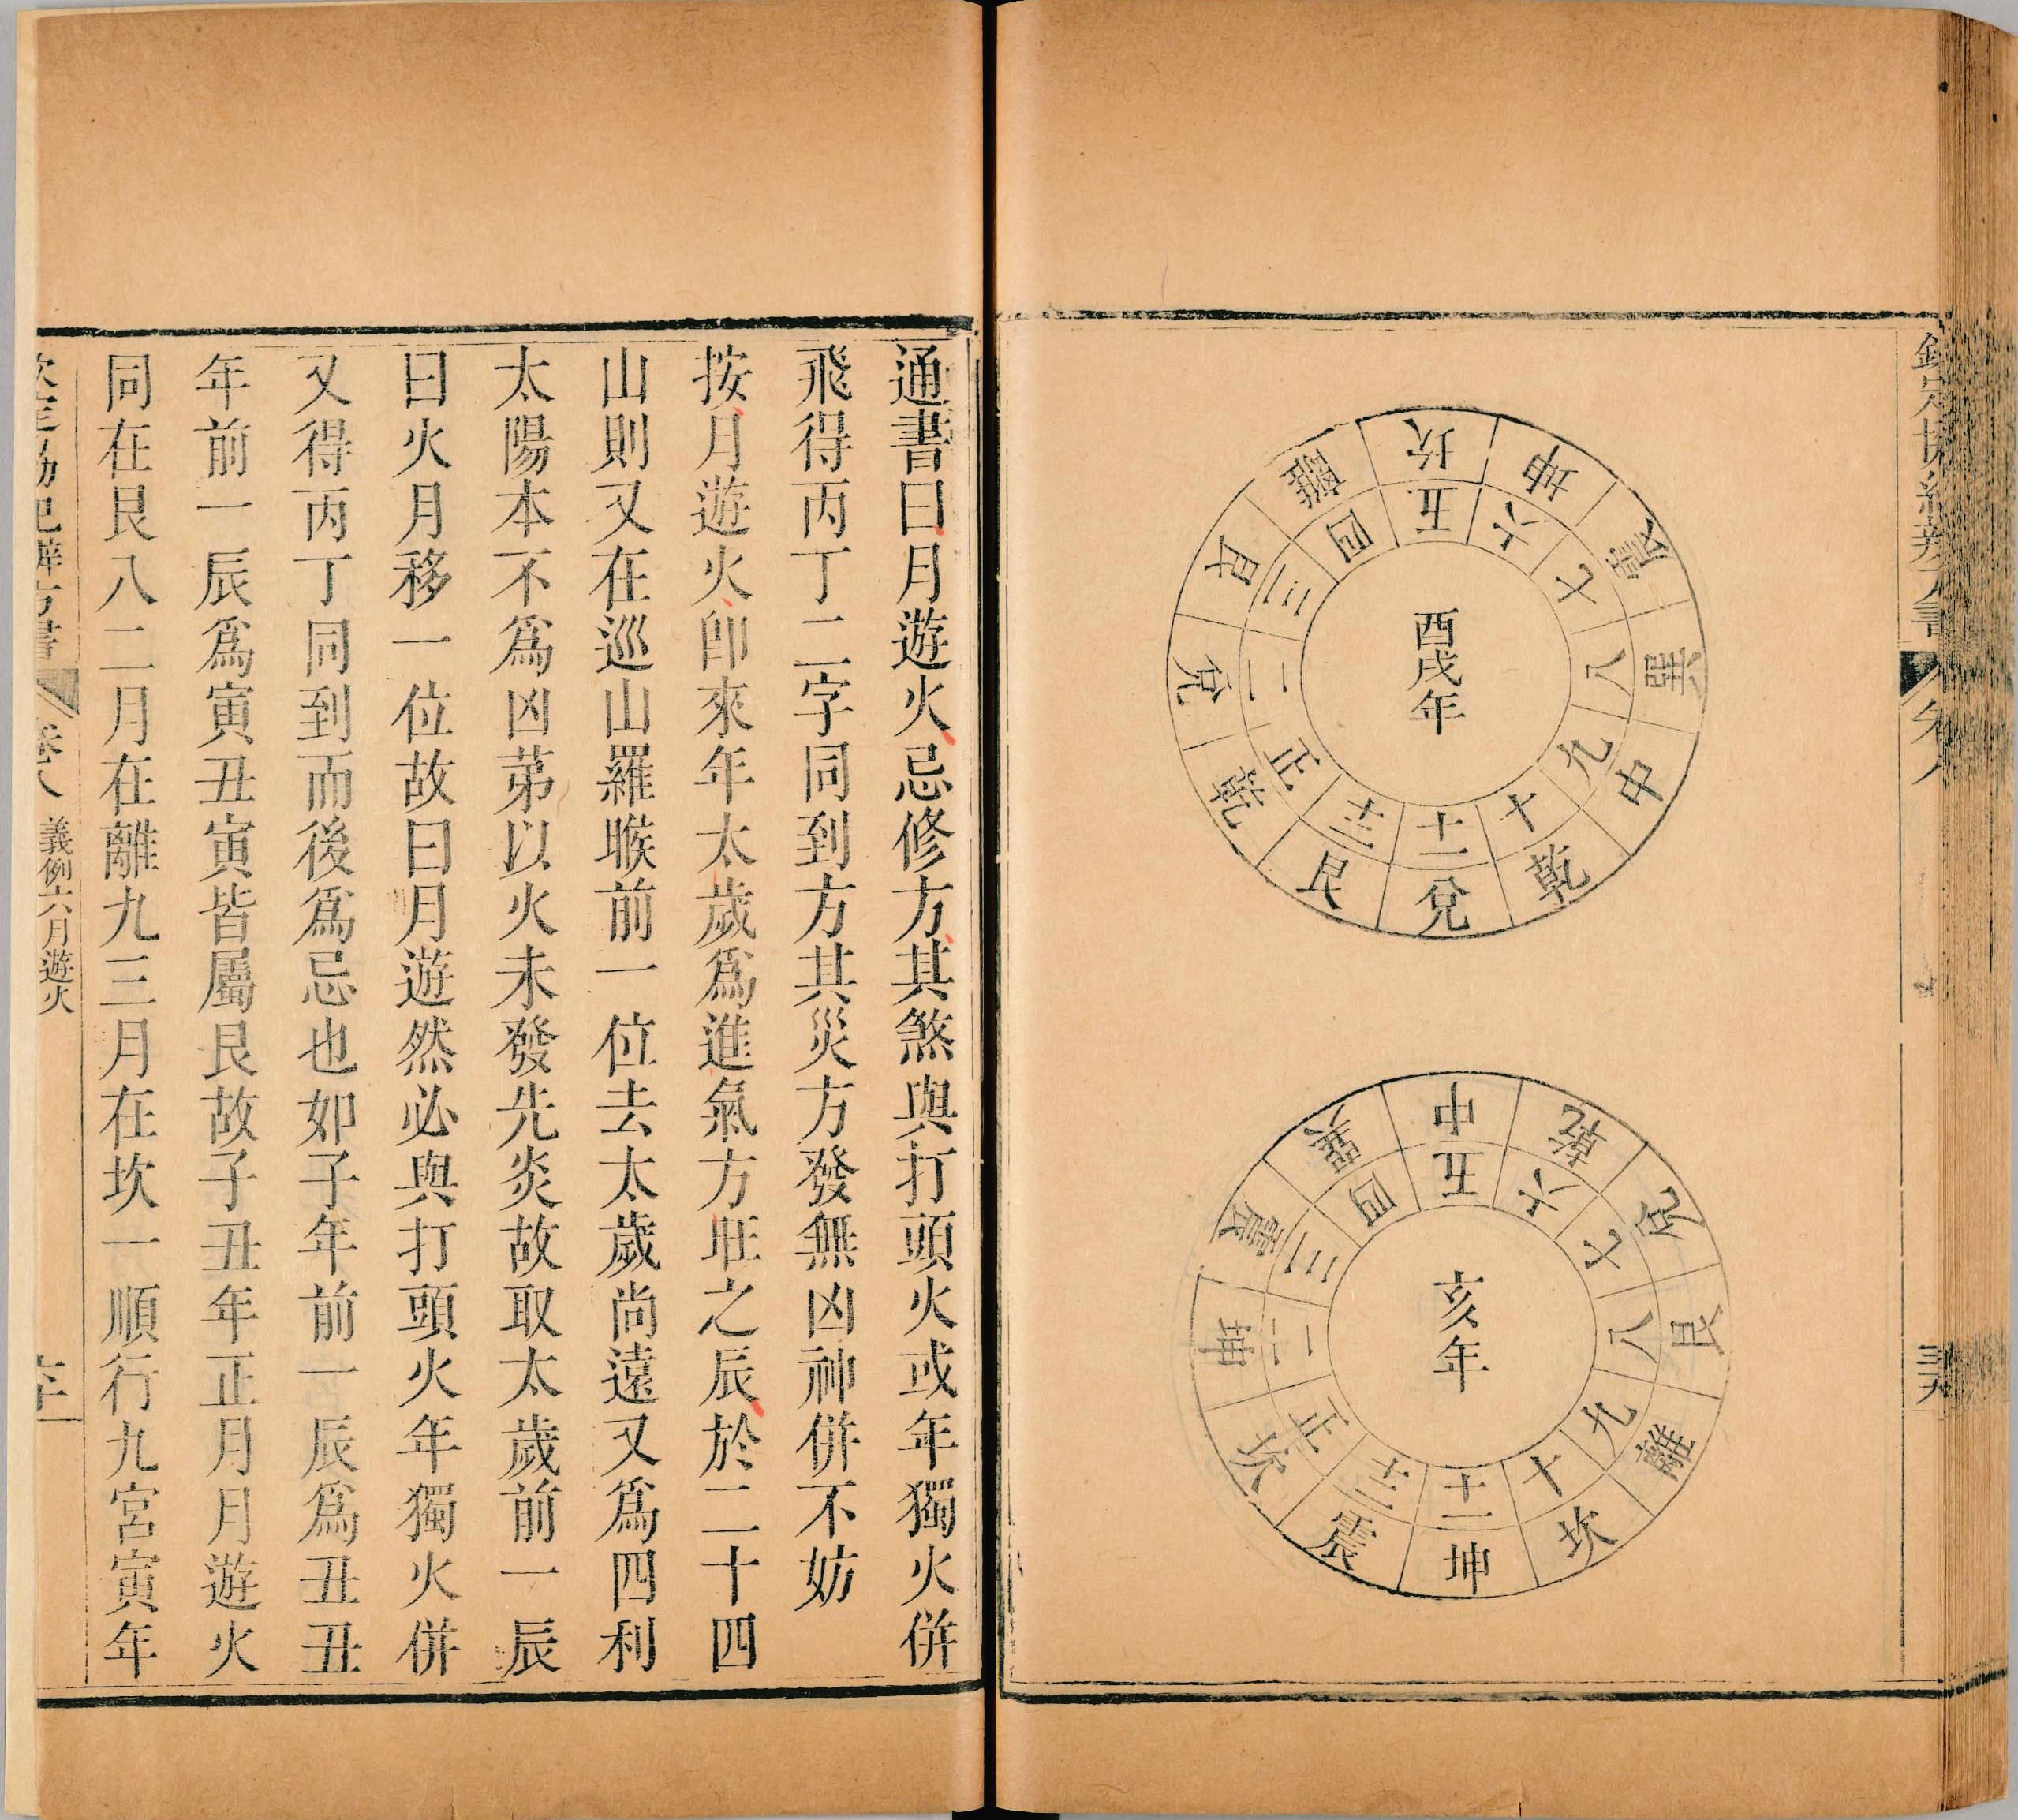 酉戌年
正 二 三 四 五 六 七 八 九 十 十一 十二
乾 兌 艮 離 坎 坤 震 巽 中 乾 兌 艮
亥年
正 二 三 四 五 六 七 八 九 十 十一 十二
坎 坤 震 巽 中 乾 兌 艮 離 坎 坤 震
通書曰月遊火忌修方其煞與打頭火或年獨火併
飛得丙丁二字同到方其災方發無凶神併不妨
按月遊火卽來年太歲爲進氣方旺之辰於二十四
山則又在巡山羅㬋前一位去太歲尚遠又爲四利
太陽本不爲凶苐以火未發先炎故取太歲前一辰
曰火月移一位故曰月遊然必與打頭火年獨火併
又得丙丁同到而後爲忌也如子年前一辰爲丑丑
年前一辰爲寅丑寅皆屬艮故子丑年正月月遊火
同在艮八二月在離九三月在坎一順行九宮寅年
卷八 義例六月遊火